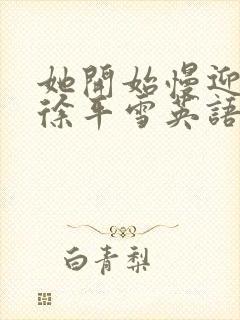 她開始慢迎
徐平雪英語
白青梨